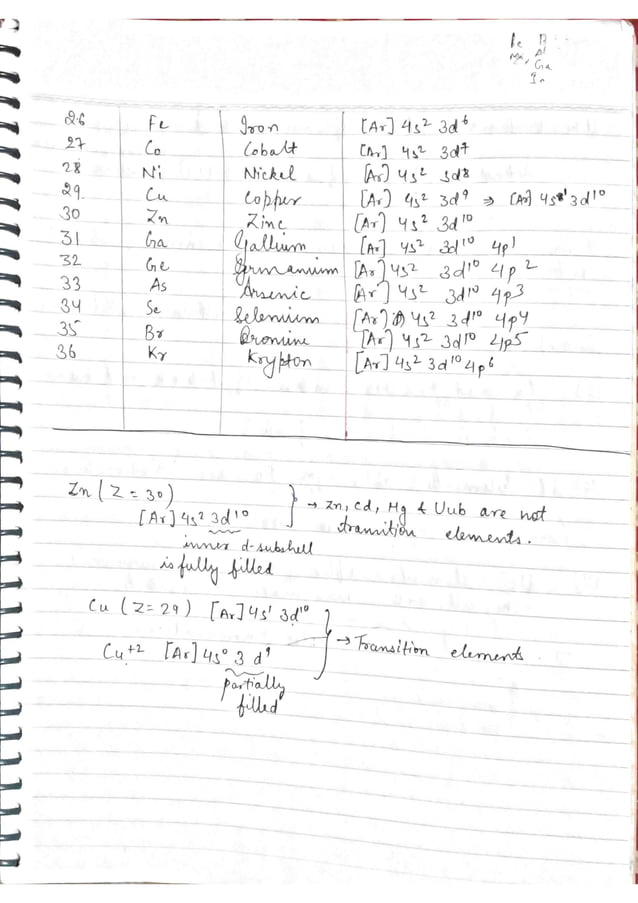 Be B
Mg Al
Ga
In
26 Fe Iron [Ar] 4s² 3d⁶
27 Co Cobalt [Ar] 4s² 3d⁷
28 Ni Nickel [Ar] 4s² 3d⁸
29 Cu Copper [Ar] 4s² 3d⁹ ⇒ [Ar] 4s¹ 3d¹⁰
30 Zn Zinc [Ar] 4s² 3d¹⁰
31 Ga Gallium [Ar] 4s² 3d¹⁰ 4p¹
32 Ge Germanium [Ar] 4s² 3d¹⁰ 4p²
33 As Arsenic [Ar] 4s² 3d¹⁰ 4p³
34 Se Selenium [Ar] 4s² 3d¹⁰ 4p⁴
35 Br Bromine [Ar] 4s² 3d¹⁰ 4p⁵
36 Kr Krypton [Ar] 4s² 3d¹⁰ 4p⁶
Zn (Z = 30)
[Ar] 4s² 3d¹⁰
inner d-subshell
is fully filled
→ Zn, Cd, Hg & Uub are not
transition elements.
Cu (Z = 29) [Ar] 4s¹ 3d¹⁰
Cu⁺² [Ar] 4s⁰ 3d⁹
partially
filled
→ Transition elements.